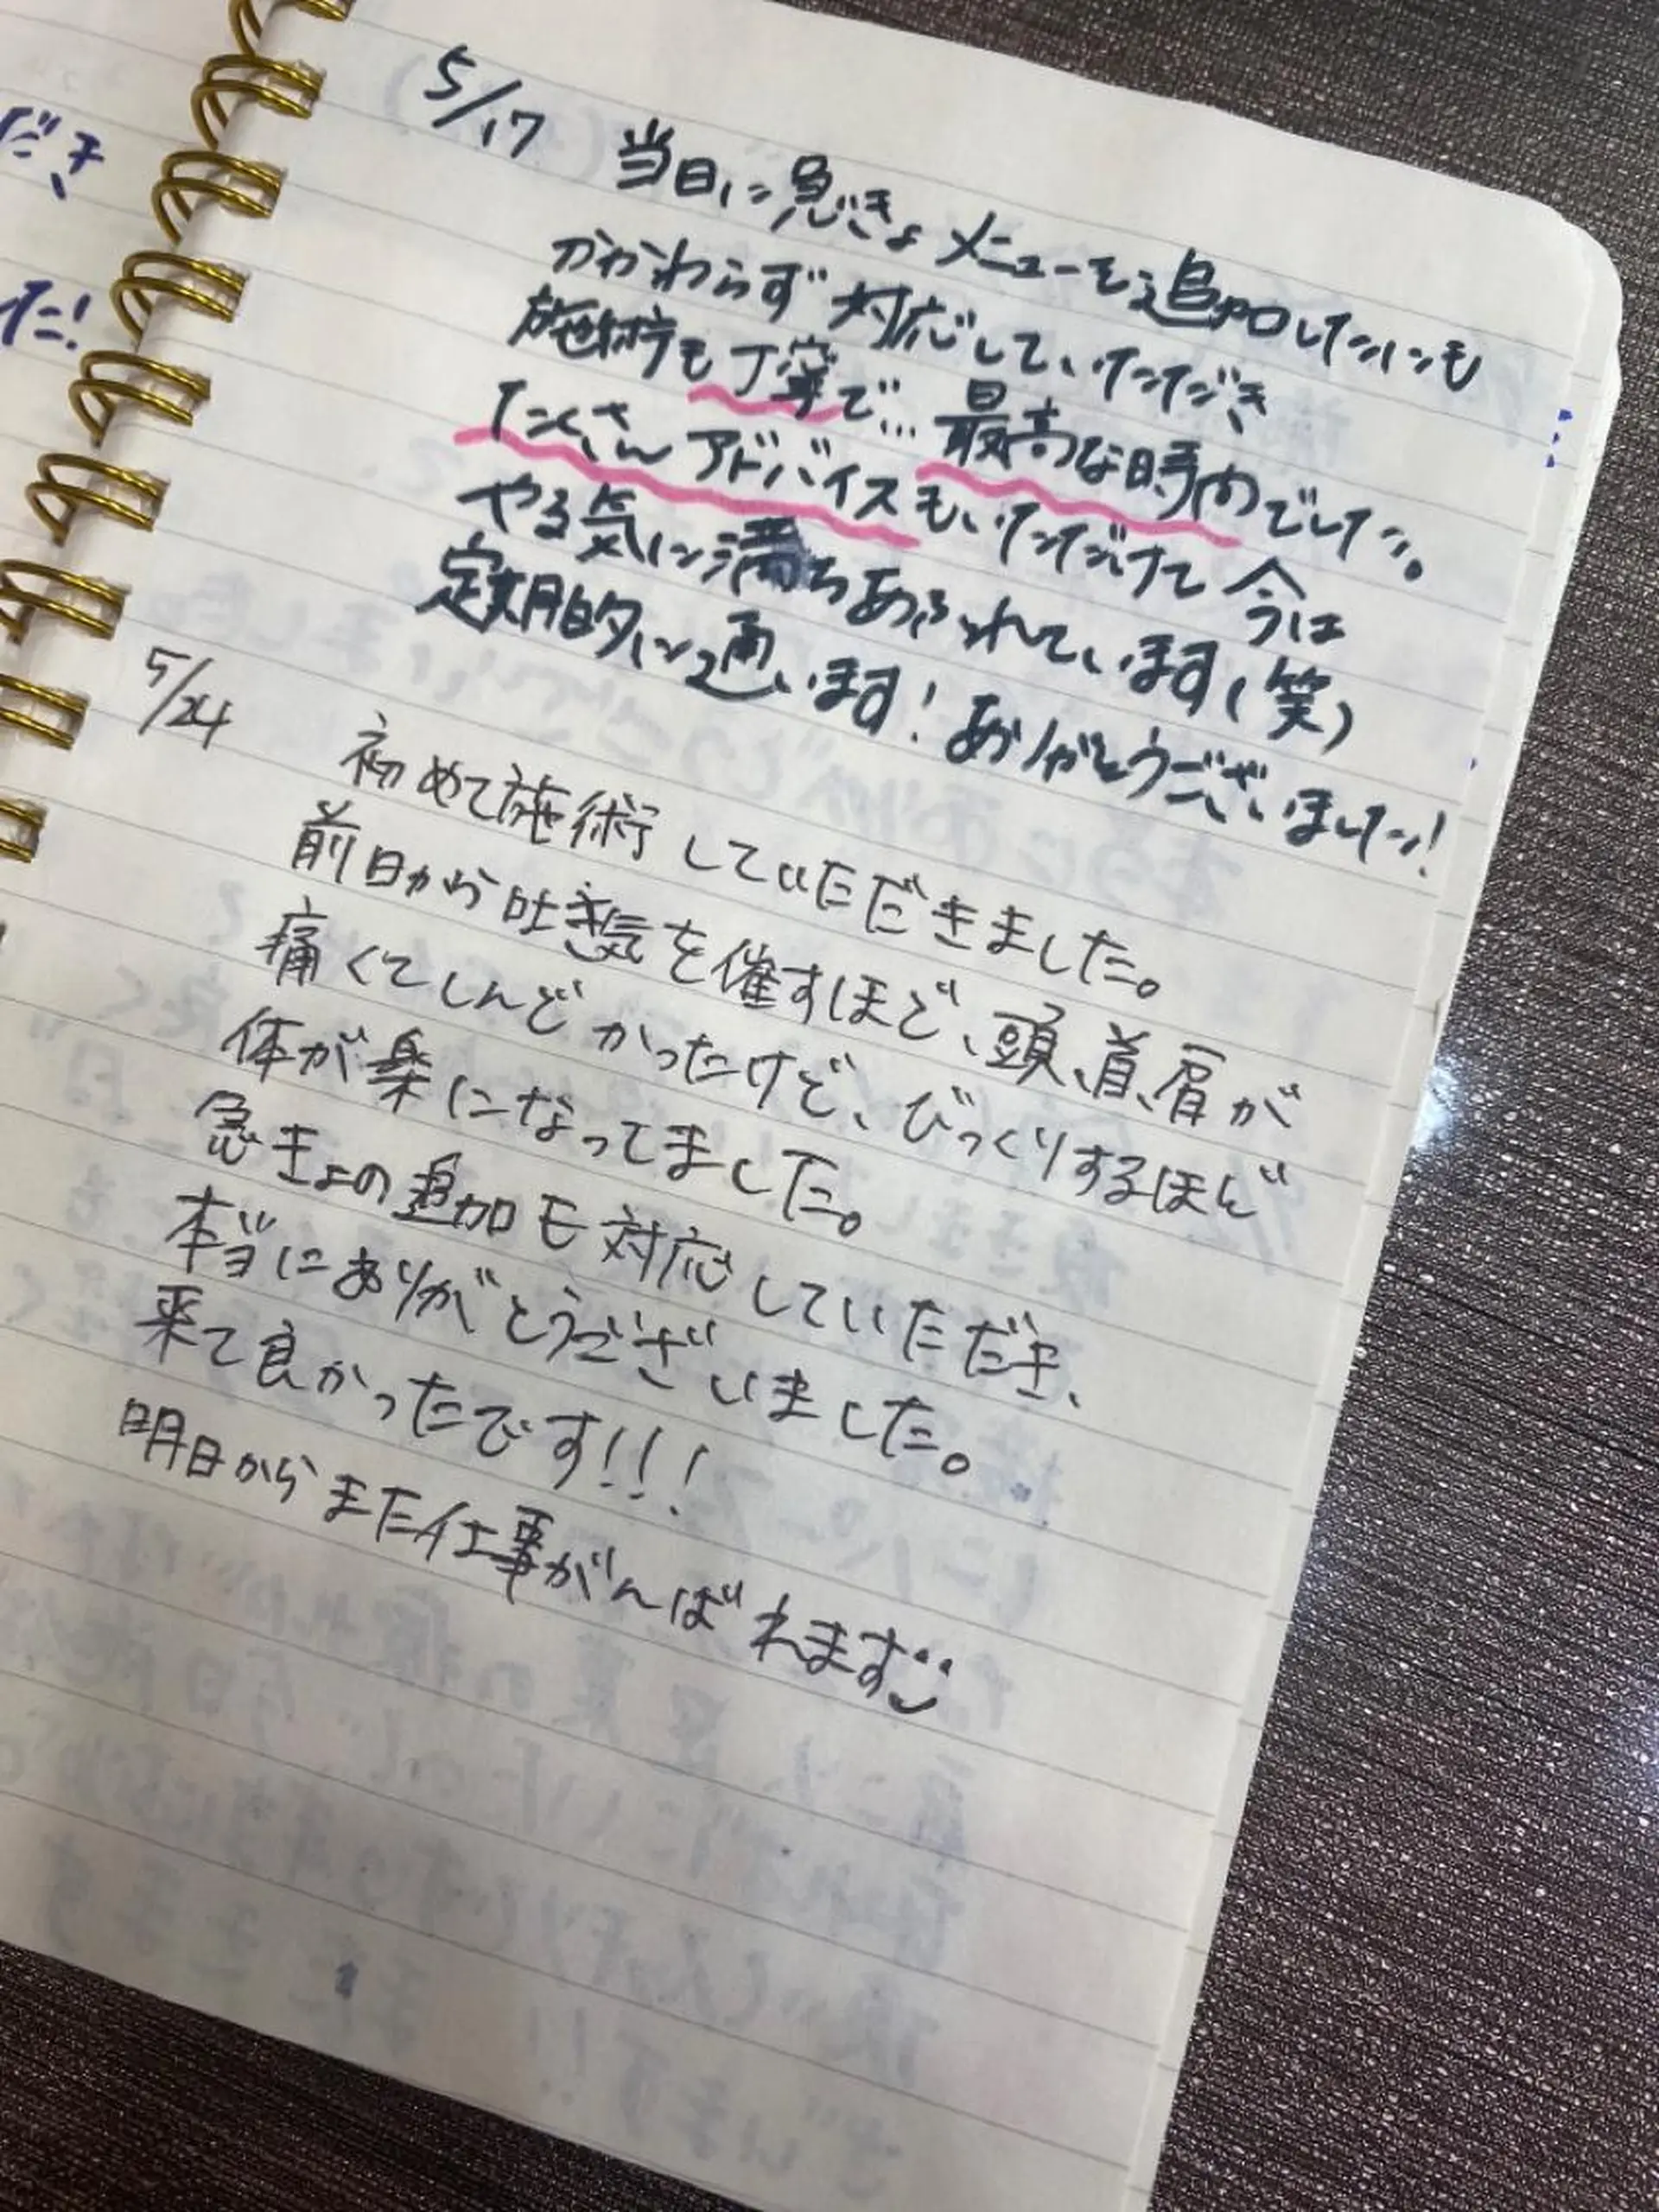 だき
た!
5/17 当日に急きょメニューを追加したにも
かかわらず対応して、いただき
施術も丁寧で… 最高な時間でした。
たくさんアドバイスもいただけて今は
やる気に満ちあふれています(笑)
定期的に通います! ありがとうございました!
5/24
初めて施術していただきました。
前日から吐き気を催すほど、頭、首、肩が
痛くてしんどかったけど、びっくりするほど
体が楽になってました。
急きょの追加も対応していただき、
本当にありがとうございました。
来て良かったです!!!
明日からまた仕事がんばれます